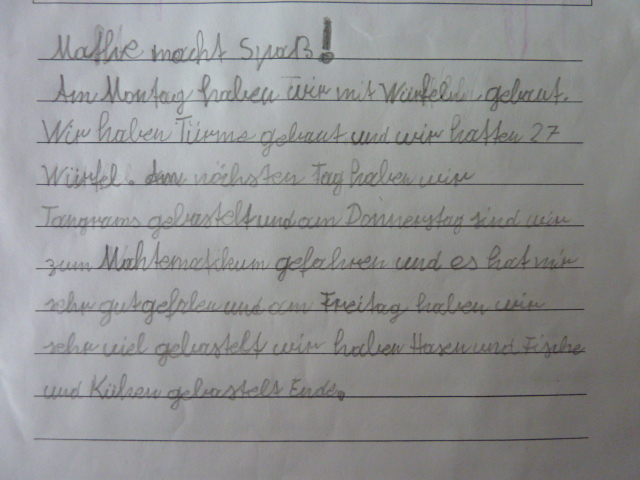 Mathe macht Spaß!
Am Montag haben wir mit Würfeln gebaut.
Wir haben Türme gebaut und wir hatten 27
Würfel. Am nächsten Tag haben wir
Tangrams gebastelt und am Donnerstag sind wir
zum Mahtematikum gefahren und es hat mir
sehr gut gefalen und am Freitag haben wir
sehr viel gebastelt wir haben Hasen und Fische
und Küken gebastelt Ende.